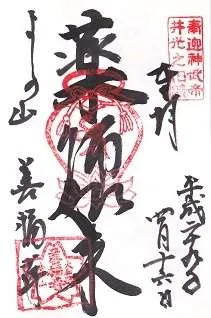 奉迎神武帝
井光之
奉拝
平成二十九年
四月十六日
薬師如来
よしの山
善福寺